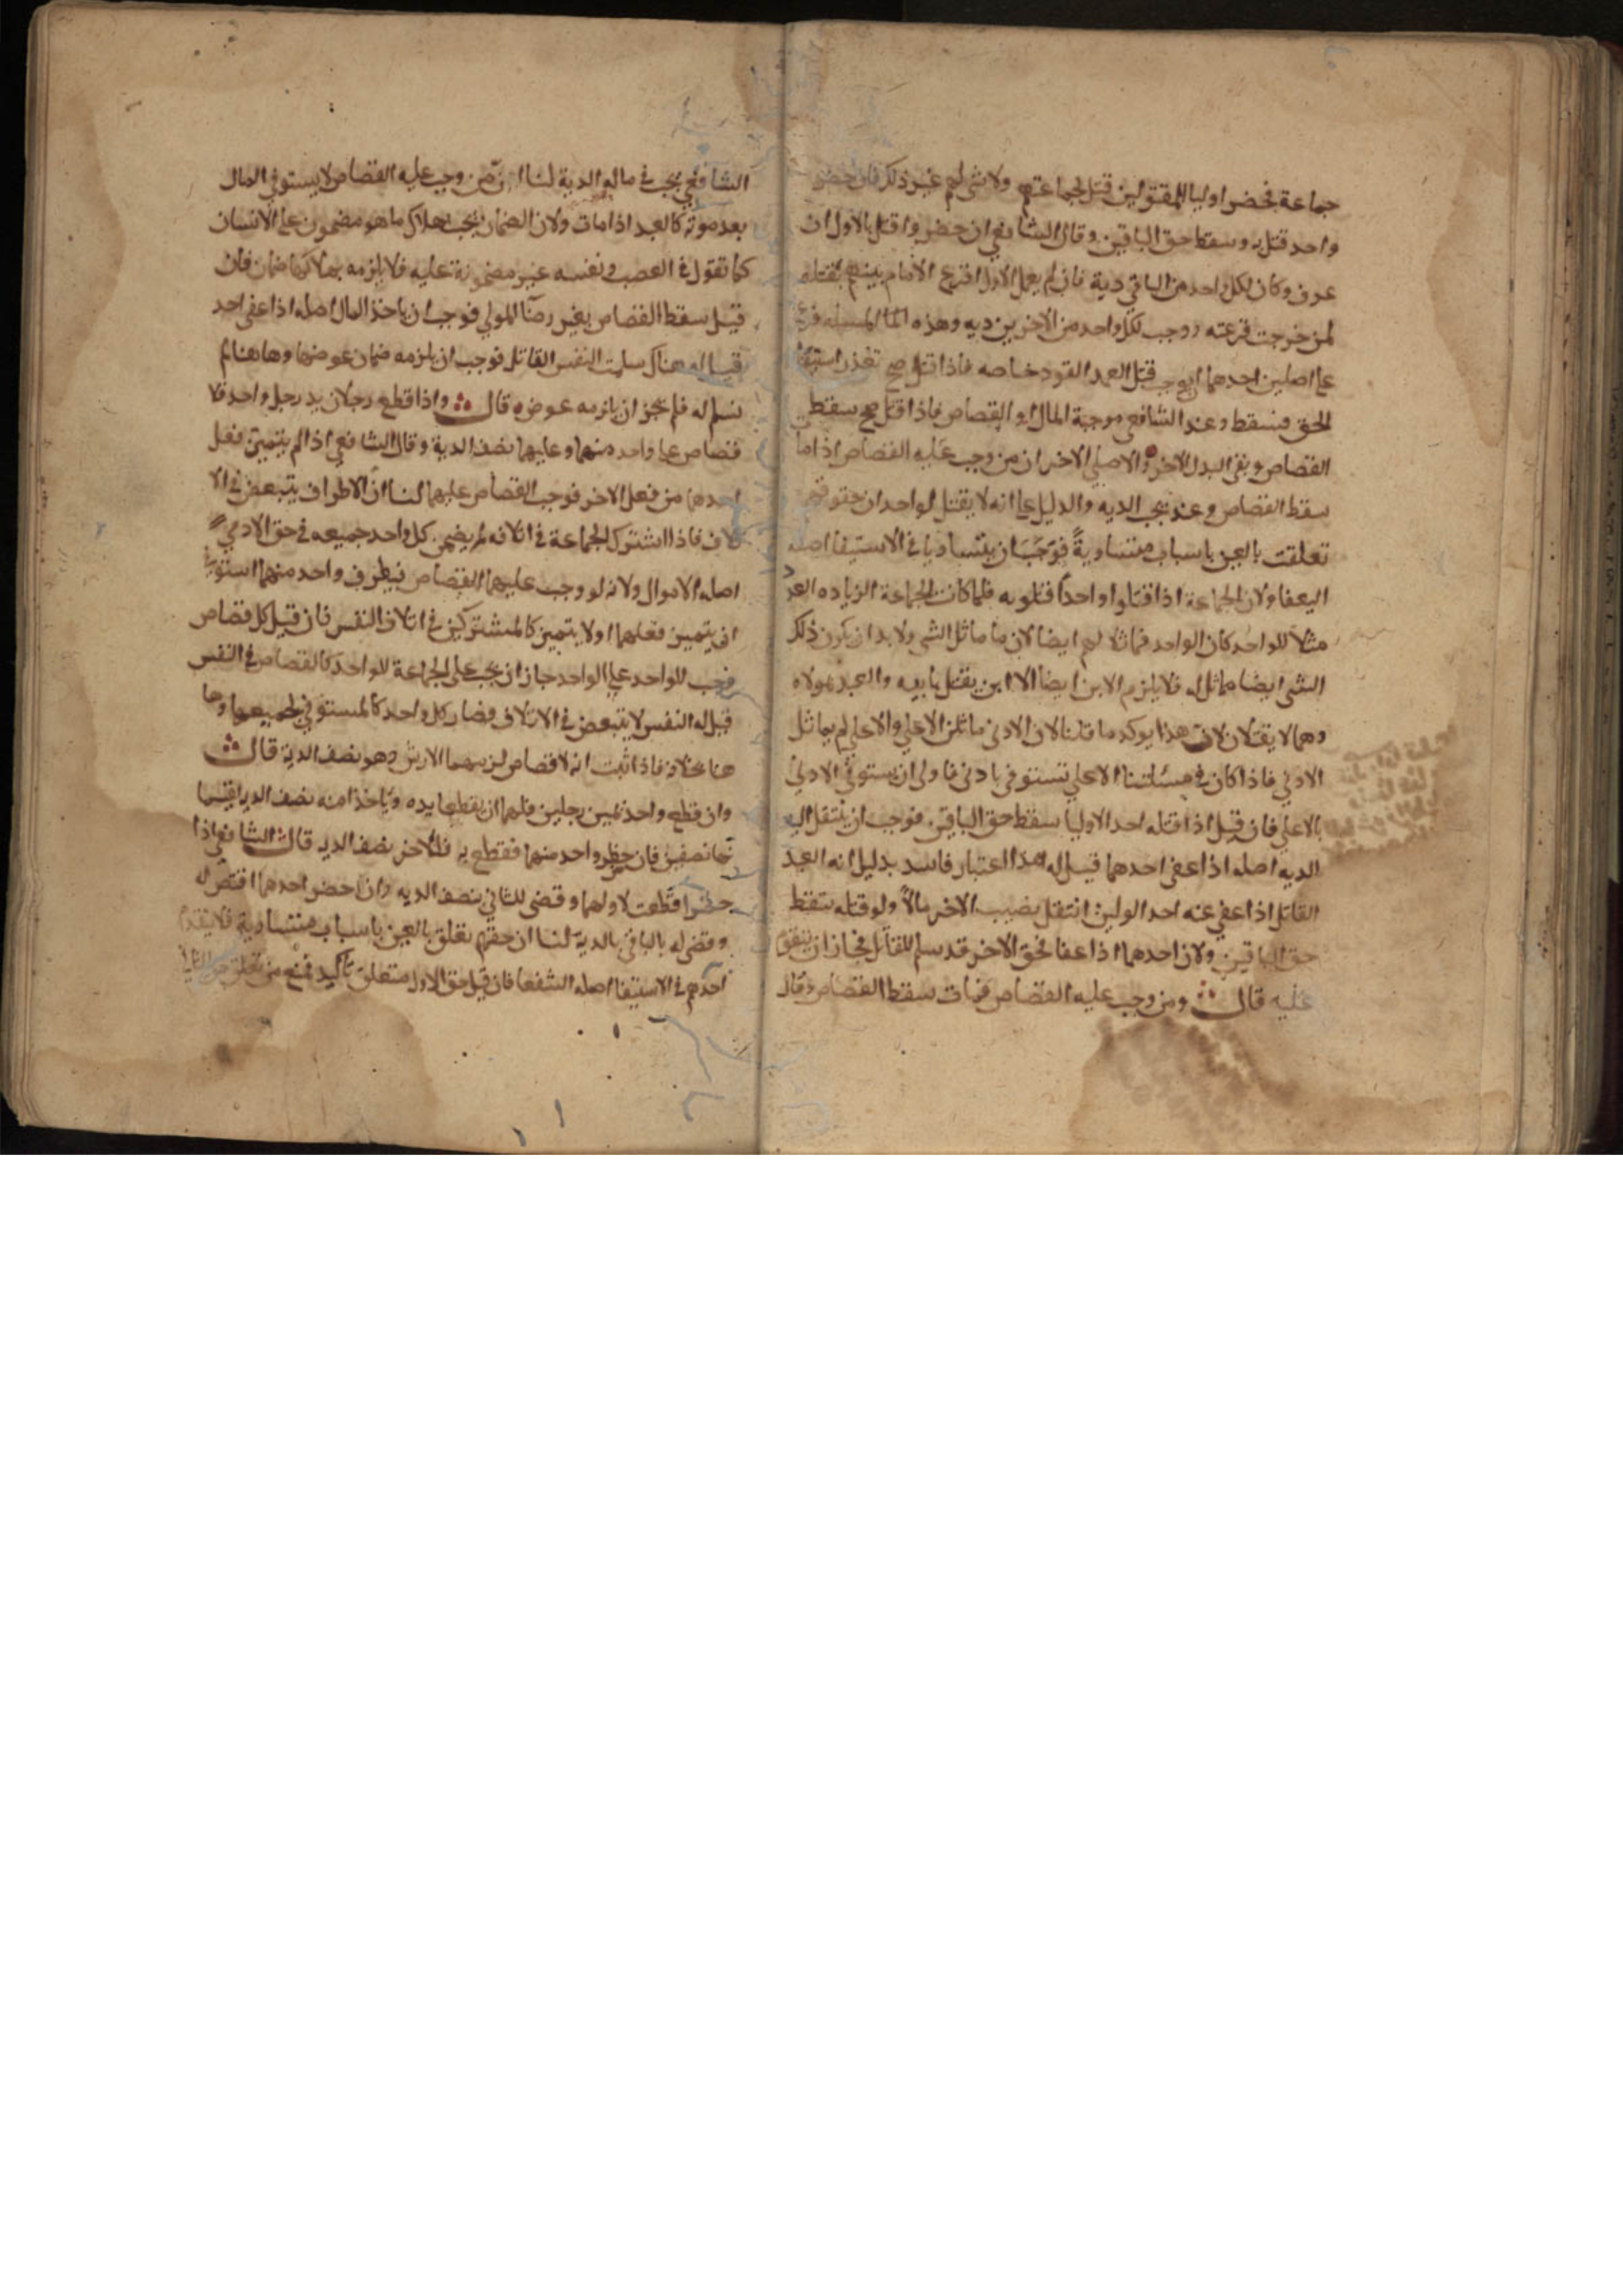 جماعة فحضر اوليا المقتولين قتل لجماعتهم ولا شي لهم غير ذلك فان حضر
واحد قتل به وسقط حق الباقين وقال الشافعي ان حضروا قتل بالاول ان
عرف وكان لكل واحد من الباقي دية فان لم يعلم الاول اقرع الامام بينهم بقتله
لمن خرجت قرعته ووجب لكل واحد من الاخرين ديه وهذه المسله فرع
علي اصلين احدهما ان موجب قتل العمد القود خاصه فاذا قتل صح تعذر استيفا
الحق فسقط وعند الشافعي موجبة المال او القصاص فاذا قتل صح سقط
القصاص وبقي البدل الاخر والاصل الاخر ان من وجب عليه القصاص اذا مات
سقط القصاص وعنده يجب الديه والدليل علي انه لا يقتل لواحد ان حقوقهم
تعلقت بالعين باسباب متساوية فوجب ان يتساويا في الاستيفا اصله
ولان الجماعة اذا قتلوا واحدا قتلوا به فلما كانت الجماعة
مثلا للواحد كان الواحد مماثلا لهم ايضا لان ما ماثل الشي ولا بد ان يكون ذلك
الشي ايضا مماثل له فلا يلزم الابن ايضا لا ابن يقتل بابيه والعبد بمولاه
وهما لا يقتلان لان هذا يوكد ما قلنا لان الادني ماثل الاعلي والاعلي لم يماثل
الادني فاذا كان في مسئلتنا الاعلي تستوفي بادني فاولي ان يستوفي الادني
بالاعلي فان قيل اذا قتله احد الاوليا سقط حق الباقين فوجب ان ينتقل الي
الديه اصله اذا عفي احدهما قيل له هذا اعتبار فاسد بدليل انه العبد
القاتل اذا عفي عنه احد الوليين انتقل نصيب الاخر مالا ولو قتله سقط
حق الباقين ولان احدهما اذا عفا فحق الاخر قد سلم للقاتل فجاز ان
عليه قال ومن وجب عليه القصاص فمات سقط القصاص وقال
الشافعي يجب في ماله الدية لنا ان من وجب عليه القصاص لا يستوفي المال
بعد موته كالعبد اذا مات ولان الضمان يجب بهلاك ما هو مضمون علي الانسان
كما تقول في الغصب ونفسه غير مضمونة عليه فلا يلزمه بهلاكها ضمان فان
قيل سقط القصاص بغير رضا المولي فوجب ان ياخذ المال اصله اذا عفي احد
قيل له هناك سلمت النفس القاتل فوجب ان يلزمه ضمان عوضها وهاهنا لم
تسلم له فلم يجز ان يلزمه عوضه قال واذا قطع رجلان يد رجل واحد فلا
قصاص علي واحد منهما وعليهما نصف الدية وقال الشافعي اذا لم يتميز فعل
احدهما من فعل الاخر فوجب القصاص عليهما لنا ان الاطراف يتبعض في الا
تلاف فاذا اشترك الجماعة في اتلافه لم يضمن كل واحد جميعه في حق الادمي
اصله الاموال ولانه لو وجب عليهما القصاص في طرف واحد منهما استوي
ان يتميز فعلهما اولا يتميز كالمشتركين في اتلاف النفس فان قيل كل قصاص
وجب للواحد علي الواحد جاز ان يجب علي الجماعة للواحد كالقصاص في النفس
قيل له النفس لا يتبعض في الاتلاف فصار كل واحد كالمستوفي لجميعها وها
هنا بخلافه فاذا ثبت انه لا قصاص لزمهما الارش وهو نصف الدية قال
وان قطع واحد يمين رجلين فلهما ان يقطعا يده وياخذا منه نصف الديه يقتسما
نها نصفين فان حضر واحد منهما فقطع يد فللاخر نصف الديه قال الشافعي اذا
حضرا قطعت لاولهما وقضي للثاني بنصف الديه وان حضر احدهما اقتص له
وقضي له بالباقي بالدية لنا ان حقهم تعلق بالعين باسباب متساوية فلا يقدم
احدهم في الاستيفا اصله الشفعا فان قيل حق الاول متعلق تاكيد فمنع من تعلق حق الثاني